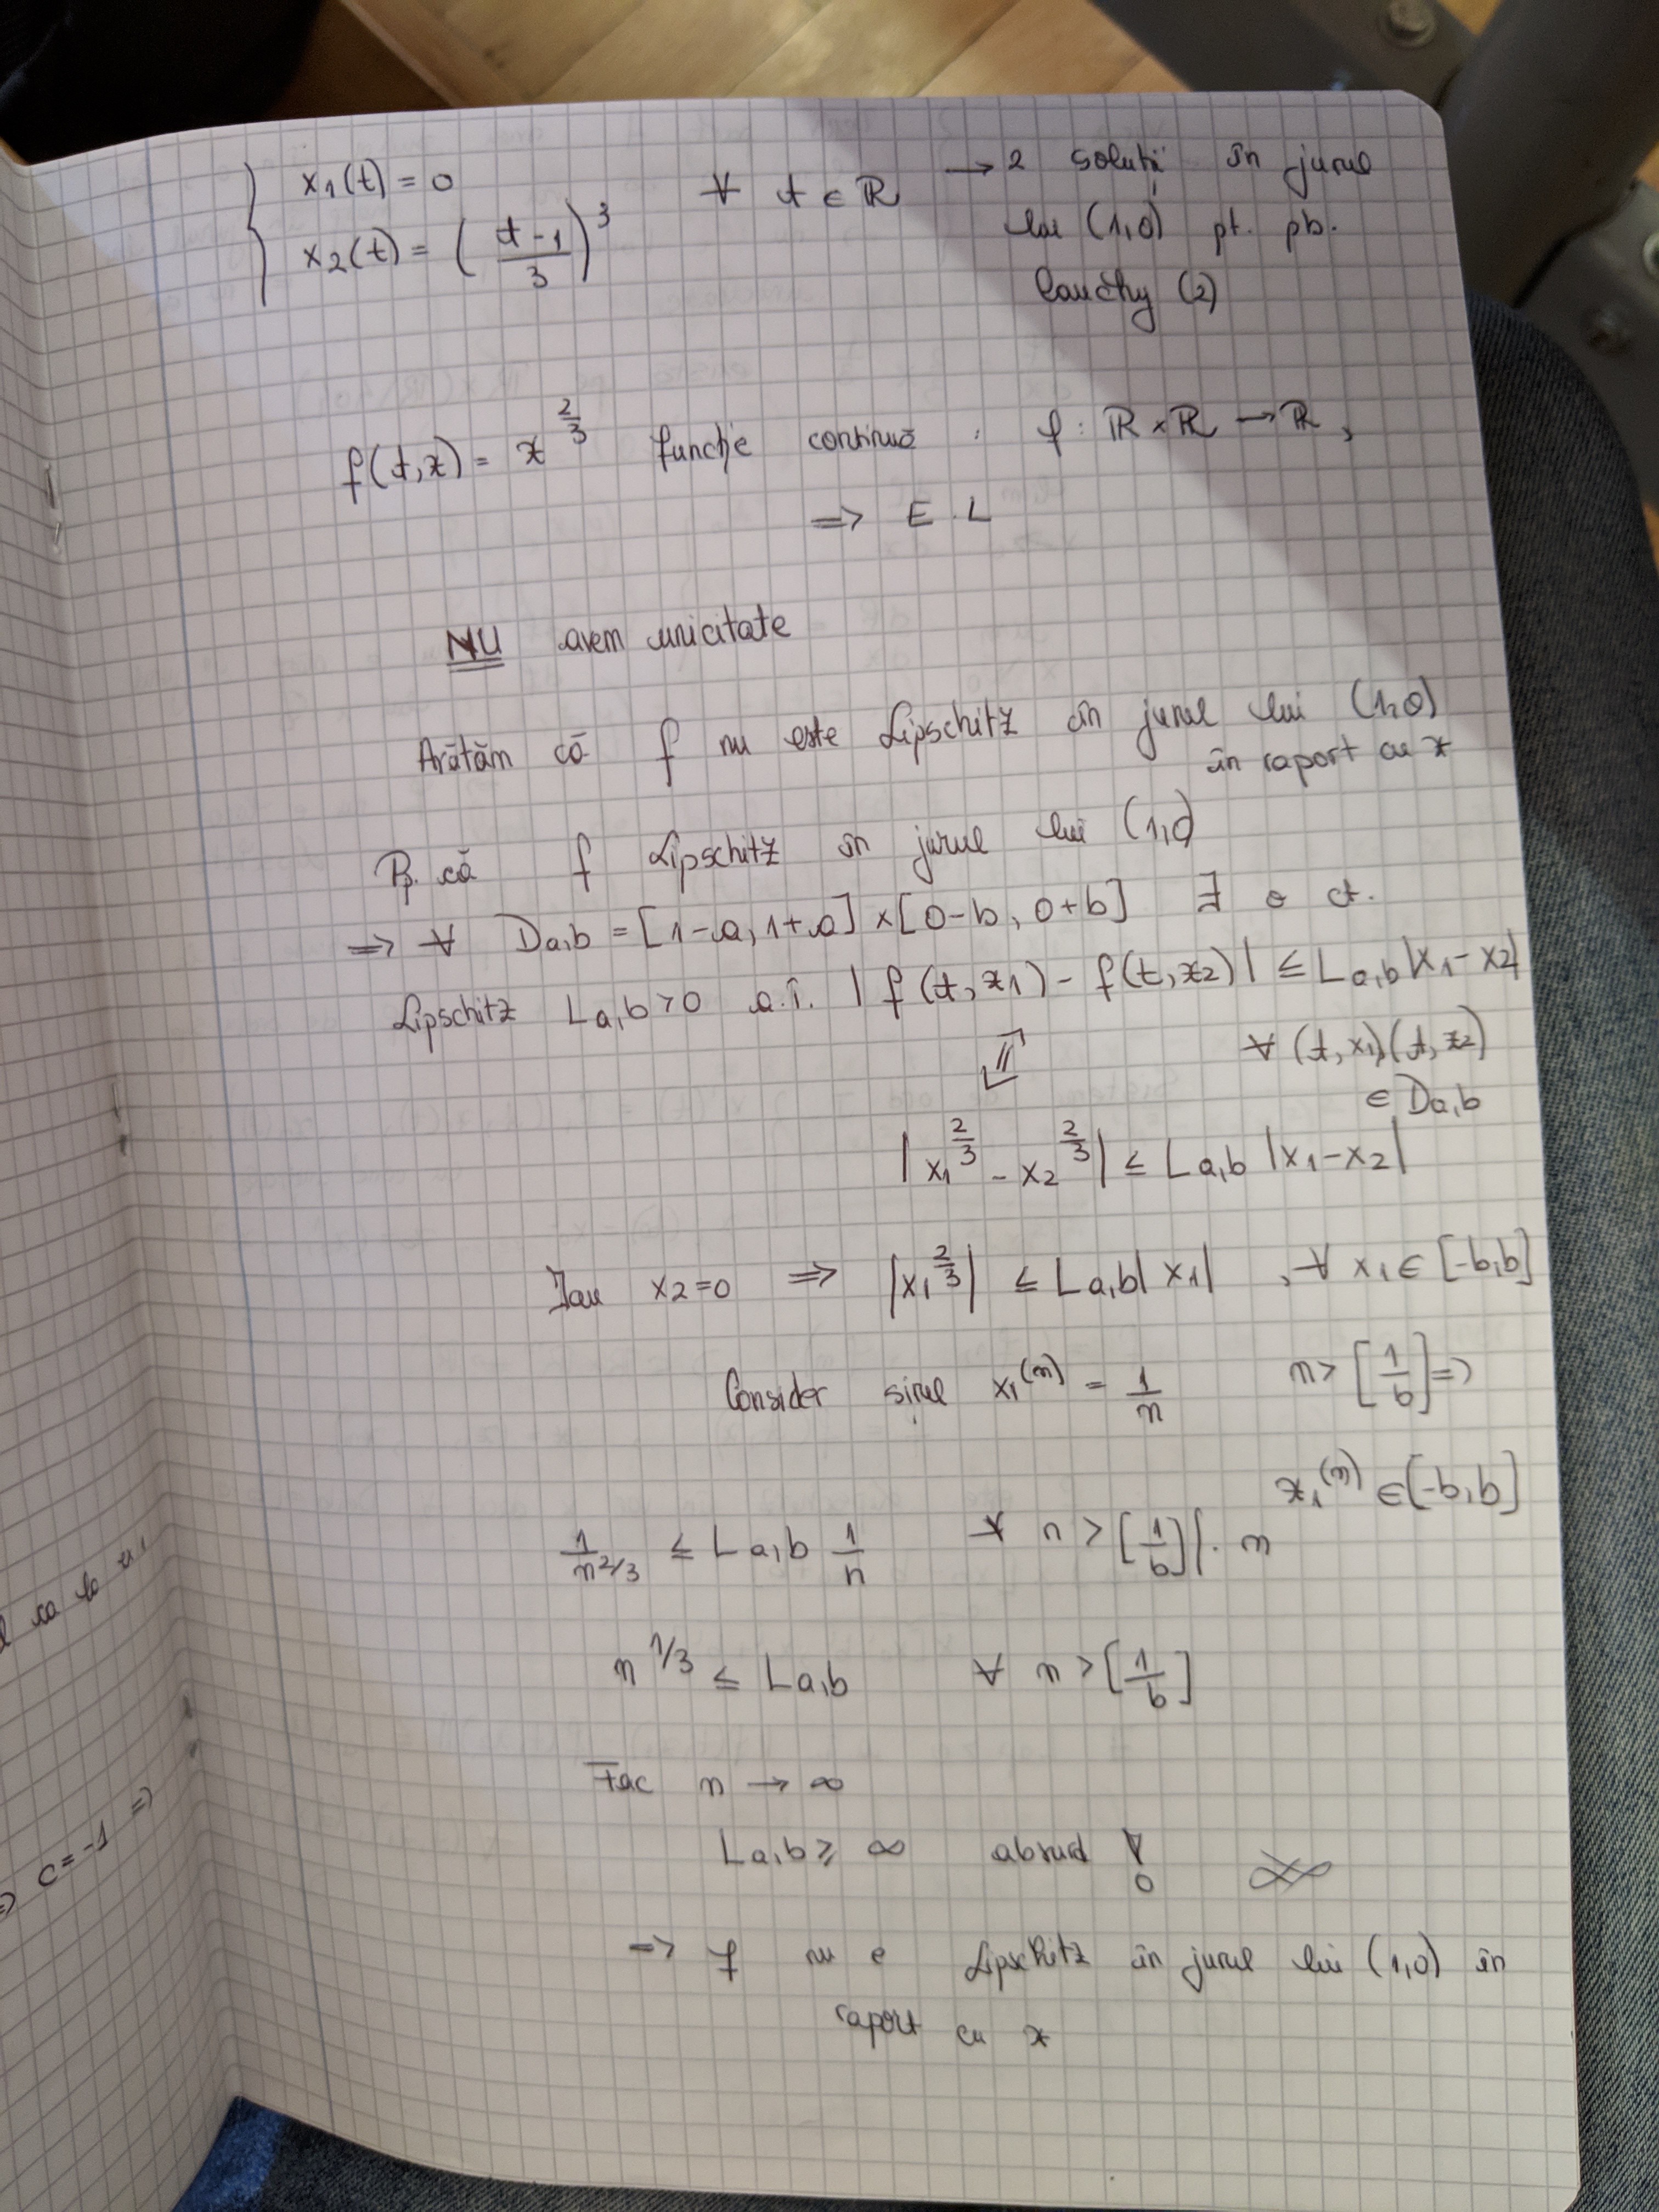 x₁(t) = 0 ∀ t ∈ ℝ → 2 soluții în jurul
x₂(t) = ((t-1)/3)³ lui (1,0) pt. pb.
Cauchy (2)
f(t,x) = x^(2/3) funcție continuă , f: ℝ×ℝ → ℝ,
=> E.L
NU avem unicitate
Arătăm că f nu este Lipschitz în jurul lui (1,0)
în raport cu x
Pp. că f Lipschitz în jurul lui (1,0)
=> ∀ Da,b = [1-a, 1+a] × [0-b, 0+b] ∃ o ct.
Lipschitz La,b > 0 a.î. |f(t,x₁) - f(t,x₂)| ≤ La,b |x₁-x₂|
∀ (t,x₁),(t,x₂)
∈ Da,b
⇔
|x₁^(2/3) - x₂^(2/3)| ≤ La,b |x₁-x₂|
Iau x₂=0 => |x₁^(2/3)| ≤ La,b |x₁| , ∀ x₁ ∈ [-b,b]
Consider șirul x₁^(n) = 1/n n > [1/b] =>
x₁^(n) ∈ [-b,b]
1/n^(2/3) ≤ La,b 1/n ∀ n > [1/b] | · n
n^(1/3) ≤ La,b ∀ n > [1/b]
Fac n → ∞
La,b ≥ ∞ absurd !
=> f nu e Lipschitz în jurul lui (1,0) în
raport cu x
c = -1 =>